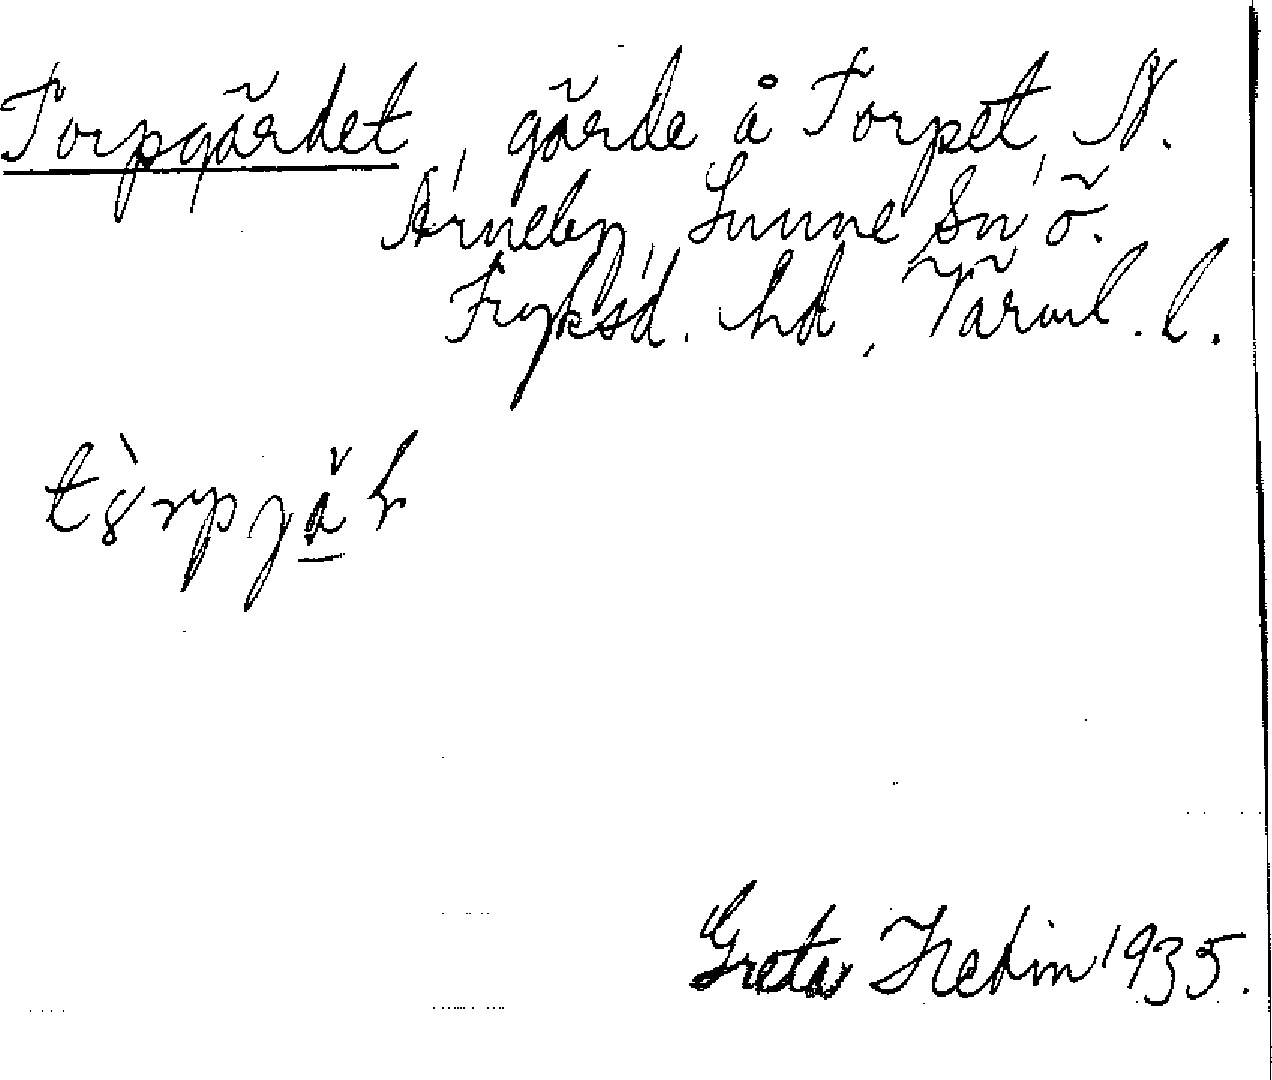 Torpgärdet, gärde å Torpet, N.
Ärneby, Sunne sn ö.
Fryksd. hd, Värml. l.
Greta Hedin 1935.